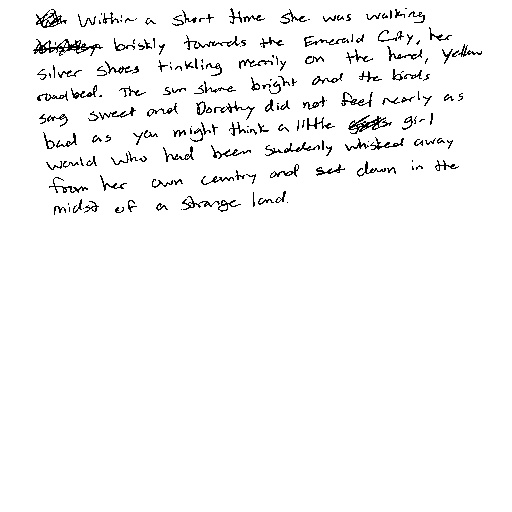 Within a short time she was walking
briskly towards the Emerald City, her
silver shoes tinkling merrily on the hard, yellow
roadbed. The sun shone bright and the birds
sang sweet and Dorothy did not feel nearly as
bad as you might think a little girl
would who had been suddenly whisked away
from her own country and set down in the
midst of a strange land.